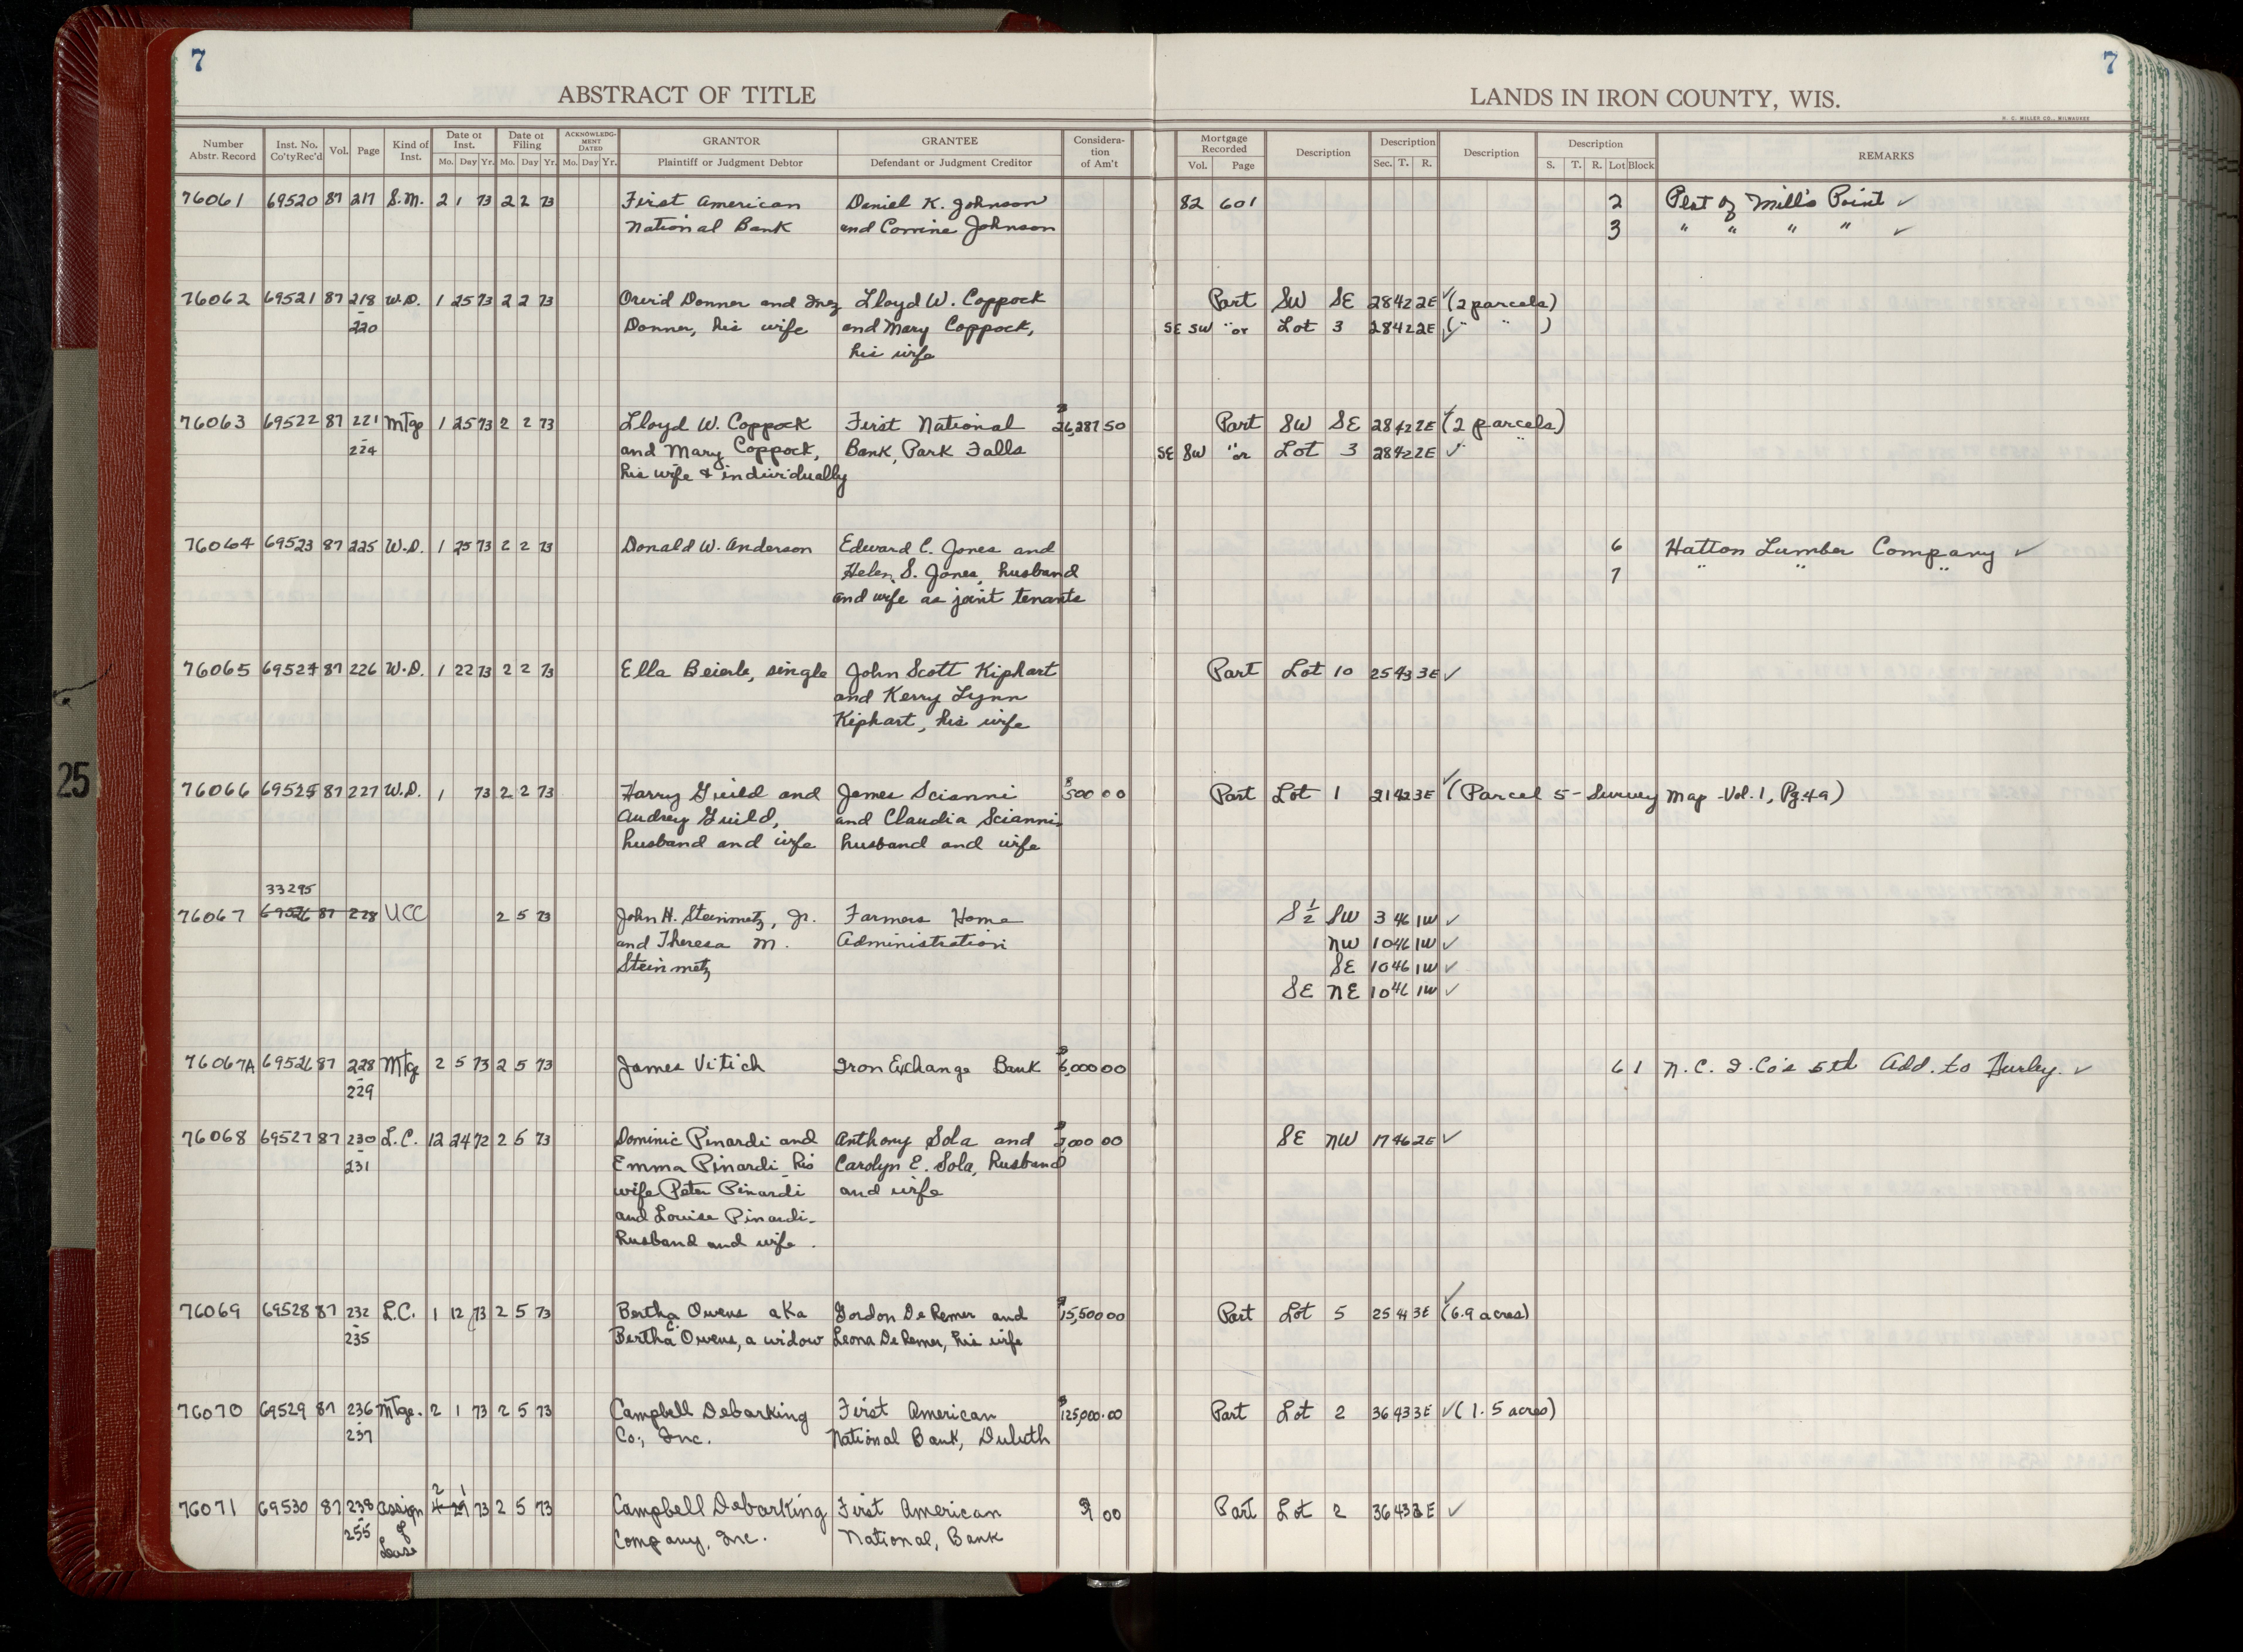 7
7
ABSTRACT OF TITLE
LANDS IN IRON COUNTY, WIS.
H. C. MILLER CO., MILWAUKEE
Number Abstr. Record Inst. No. Co'ty Rec'd Vol. Page Kind of Inst. Date of Inst. Mo. Day Yr. Date of Filing Mo. Day Yr. ACKNOWLEDGMENT DATED Mo. Day Yr. GRANTOR Plaintiff or Judgment Debtor GRANTEE Defendant or Judgment Creditor Consideration of Am't Mortgage Recorded Vol. Page Description Description Sec. T. R. Description Description S. T. R. Lot Block REMARKS
76061 69520 87 217 S.M. 2 1 73 2 2 73 First American Daniel K. Johnson 82 601 2 Plat of Mill's Point ✓
National Bank and Corrine Johnson 3 " " " " ✓
76062 69521 87 218 W.D. 1 25 73 2 2 73 Orvid Donner and Inez Lloyd W. Coppock Part SW SE 28 42 2E ✓ (2 parcels)
- 220 Donner, his wife and Mary Coppock, SE SW " or Lot 3 28 42 2E ✓ ( " " )
his wife
76063 69522 87 221 Mtge 1 25 73 2 2 73 Lloyd W. Coppock First National $26,287 50 Part SW SE 28 42 2E ✓ (2 parcels)
- 224 and Mary Coppock, Bank, Park Falls SE SW " or Lot 3 28 42 2E ✓ "
his wife & individually
76064 69523 87 225 W.D. 1 25 73 2 2 73 Donald W. Anderson Edward C. Jones and 6 Hatton Lumber Company ✓
Helen S. Jones, husband 7 " " "
and wife as joint tenants
76065 69524 87 226 W.D. 1 22 73 2 2 73 Ella Beierle, single John Scott Kiphart Part Lot 10 25 43 3E ✓
and Kerry Lynn
Kiphart, his wife
76066 69525 87 227 W.D. 1 73 2 2 73 Harry Guild and James Scianni $500 00 Part Lot 1 21 42 3E ✓ (Parcel 5 - Survey Map - Vol. 1, Pg. 49)
Audrey Guild, and Claudia Scianni
husband and wife husband and wife
33295
76067 69526 87 228 UCC 2 5 73 John H. Steinmetz, Jr. Farmers Home S ½ SW 3 46 1W ✓
and Theresa M. Administration NW 10 46 1W ✓
Steinmetz SE 10 46 1W ✓
SE NE 10 46 1W ✓
76067A 69526 87 228 Mtg 2 5 73 2 5 73 James Vitich Iron Exchange Bank $6,000 00 6 1 N.C. I. Co's 5th Add. to Hurley. ✓
- 229
76068 69527 87 230 L.C. 12 24 72 2 5 73 Dominic Pinardi and Anthony Sola and 00 SE NW 17 46 2E ✓
- 231 Emma Pinardi, his Carolyn E. Sola, husband
wife Peter Pinardi and wife
and Louise Pinardi-
husband and wife.
76069 69528 87 232 L.C. 1 12 73 2 5 73 Bertha Owens aka Gordon DeRemer and $15,500 00 Part Lot 5 25 3E ✓ (6.9 acres)
- 235 Bertha C. Owens, a widow Leona DeRemer, his wife
76070 69529 87 236 Mtge. 2 1 73 2 5 73 Campbell Debarking First American $125,000.00 Part Lot 2 36 43 3E ✓ (1.5 acres)
- 237 Co., Inc. National Bank, Duluth
76071 69530 87 238 Assign 2 1 73 2 5 73 Campbell Debarking First American 00 Part Lot 2 36 43 3E ✓
- 255 of Lease Company, Inc. National, Bank
25